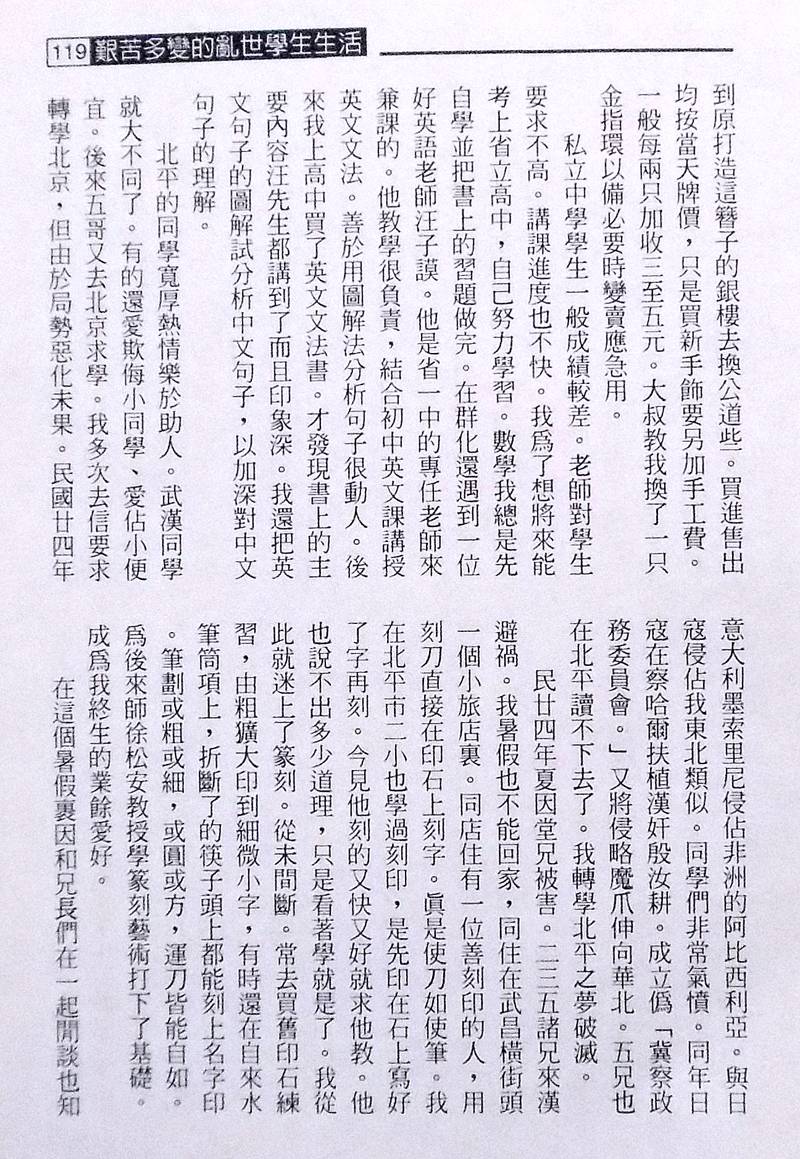 119 艱苦多變的亂世學生生活
到原打造這簪子的銀樓去換公道些。買進售出
均按當天牌價，只是買新手飾要另加手工費。
一般每兩只加收三至五元。大叔教我換了一只
金指環以備必要時變賣應急用。
私立中學學生一般成績較差。老師對學生
要求不高。講課進度也不快。我爲了想將來能
考上省立高中，自己努力學習。數學我總是先
自學並把書上的習題做完。在群化還遇到一位
好英語老師汪子謨。他是省一中的專任老師來
兼課的。他教學很負責，結合初中英文課講授
英文文法。善於用圖解法分析句子很動人。後
來我上高中買了英文文法書。才發現書上的主
要內容汪先生都講到了而且印象深。我還把英
文句子的圖解試分析中文句子，以加深對中文
句子的理解。
北平的同學寬厚熱情樂於助人。武漢同學
就大不同了。有的還愛欺侮小同學、愛佔小便
宜。後來五哥又去北京求學。我多次去信要求
轉學北京，但由於局勢惡化未果。民國廿四年
意大利墨索里尼侵佔非洲的阿比西利亞。與日
寇侵佔我東北類似。同學們非常氣憤。同年日
寇在察哈爾扶植漢奸殷汝耕。成立僞「冀察政
務委員會。」又將侵略魔爪伸向華北。五兄也
在北平讀不下去了。我轉學北平之夢破滅。
民廿四年夏因堂兄被害。二三五諸兄來漢
避禍。我暑假也不能回家，同住在武昌橫街頭
一個小旅店裏。同店住有一位善刻印的人，用
刻刀直接在印石上刻字。眞是使刀如使筆。我
在北平市二小也學過刻印，是先印在石上寫好
了字再刻。今見他刻的又快又好就求他教。他
也說不出多少道理，只是看著學就是了。我從
此就迷上了篆刻。從未間斷。常去買舊印石練
習，由粗獷大印到細微小字，有時還在自來水
筆筒項上，折斷了的筷子頭上都能刻上名字印
。筆劃或粗或細，或圓或方，運刀皆能自如。
爲後來師徐松安教授學篆刻藝術打下了基礎。
成爲我終生的業餘愛好。
在這個暑假裏因和兄長們在一起閒談也知